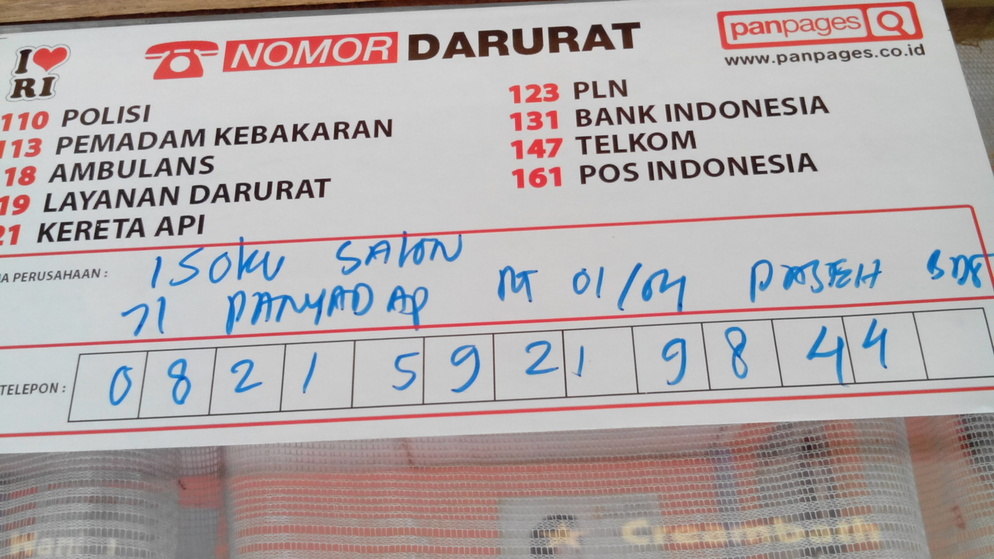 I ❤ RI
NOMOR DARURAT
panpages
www.panpages.co.id
110 POLISI
113 PEMADAM KEBAKARAN
118 AMBULANS
119 LAYANAN DARURAT
21 KERETA API
123 PLN
131 BANK INDONESIA
147 TELKOM
161 POS INDONESIA
A PERUSAHAAN : ISOKU SALON
Jl PANYADAP RT 01/04 PASEH
TELEPON : 0821 5921 9844
Creambath